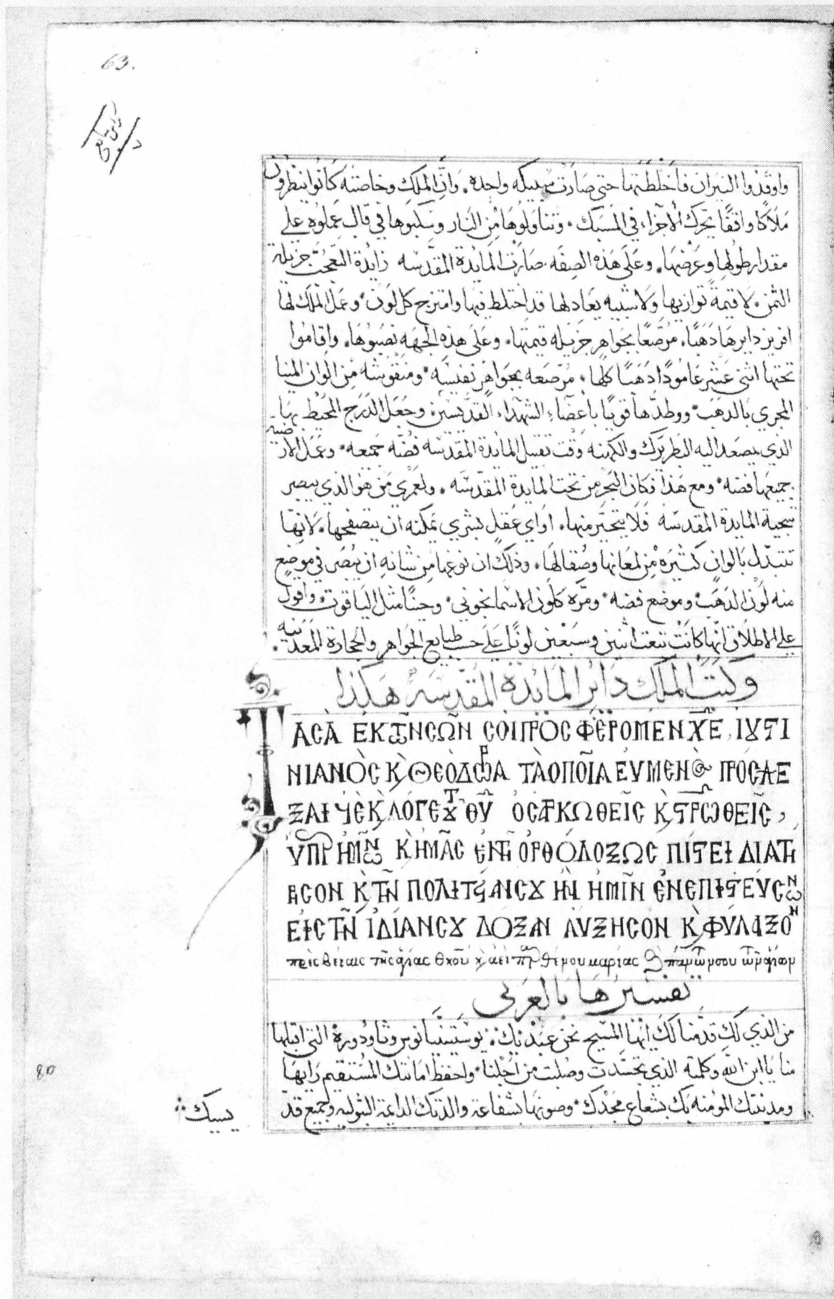 63.
واوقدوا النيران فاختلطتها حتى صارت سبيكه واحده. وان الملك وخاصته كانوا ينظرون
ملاكا واقفا يحرك الاجزاء في المسبك. وتناولوها من النار وسكبوها في قالب عملوه على
مقدار طولها وعرضها. وعلى هذه الصفه صارت المايدة المقدسه زايدة التعجب جزيلة
الثمن. لا قيمة توازيها ولا شبيه يعادلها قد اختلط فيها وامتزج كل لون. وعمل الملك لها
افريز دايرها ذهبا. مرصعا بجواهر جزيله قيمتها. وعلى هذه الجهه نصبوها. واقاموا
تحتها اثنى عشر عامودا ذهبا كلها. مرصعه بجواهر نفيسه. ومنقوشه من الوان المينا
المجري بالذهب. ووطدها قويا باعضاء الشهداء القديسين. وجعل الدرج المحيط بها
الذي يصعد اليه البطريرك والكهنه وقت تقبيل المايدة المقدسه فضه جميعه. وعمل الارضيه
جميعها فضه. ومع هذا فكان البخر من تحت المايدة المقدسه. ولعمري من هو الذي يبصر
سجية المايدة المقدسه فلا يتحير منها. او اي عقل بشري يمكنه ان يتصفحها. لانها
تتبدل بالوان كثيره من لمعانها وصقالها. وذلك ان نوعها من شانه ان يبصر في موضع
منه لون الذهب. وموضع فضه. ومره كلون الاسمانجوني. وحينا مثل الياقوت. واقول
على الاطلاق انها كانت تنعت اثنين وسبعين لونا على حسب طبايع الجواهر والحجارة المعدنيه.
وكتب الملك داير المايدة المقدسه هكذا
ΤΑ CΑ ΕΚ ΤΩΝ CΩΝ CΟΙ ΠΡΟC ΦΕΡΟΜΕΝ ΧΕ, ΙΥCΤΙ
ΝΙΑΝΟC Κ ΘΕΟΔΩΡΑ ΤΑ ΟΠΟΙΑ ΕΥΜΕΝΩC ΠΡΟCΔΕ
ΞΑΙ ΥΕ Κ ΛΟΓΕ ΤΟΥ ΘΥ Ο CΑΡΚΩΘΕΙC Κ CΤΡΩΘΕΙC,
ΥΠΡ ΗΜΩΝ Κ ΗΜΑC ΕΝ ΤΗ ΟΡΘΟΔΟΞΩC ΠΙCΤΕΙ ΔΙΑΤΗ
ΡCΟΝ Κ ΤΗΝ ΠΟΛΙΤΕΙΑΝ CΟΥ ΗΝ ΗΜΙΝ ΕΝΕΠΙCΤΕΥCΩΝ
ΕΙC ΤΗΝ ΙΔΙΑΝ CΟΥ ΔΟΞΑΝ ΑΥΞΗCΟΝ Κ ΦΥΛΑΞΟΝ
πρεισβειαις της αγιας θκου κ αει παρθενου μαριας
تفسيرها بالعربي
من الذي لك قدمنا لك ايها المسيح نحن عبيدك. يوستنيانوس وثاودورة التي اقبلها
منا يا ابن الله وكلمته الذي تجسدت وصلبت من اجلنا. واحفظ امانتك المستقيم رايها
ومدينتك المومنه بك بشعاع مجدك. وصونها بشفاعة والدتك الداعة البتوليه وجميع قد
يسيك
80